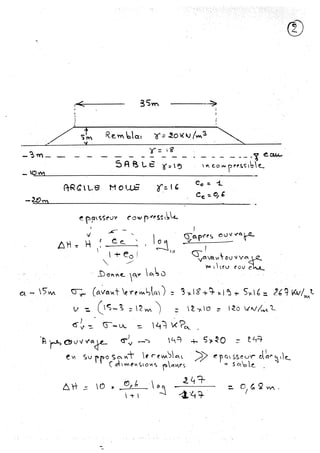 ②
35m
5m Remblai γ = 20KN/m³
γ = 18
-3m eau
SABLE γ=19 incompressible
-10m
ARGILE MOLLE γ=16 e₀ = 1
Cc = 0,6
-20m
épaisseur compressible
ΔH = H Cc / 1+e₀ . log₁₀ σ'après ouvrage / σ'avant ouvrage
milieu couche
Donné par labo
à -15m σv (avant le remblai) = 3x18+7x19+5x16 = 267 KN/m²
u = (15-3 = 12m) = 12x10 = 120 KN/m²
σ'v = σ-u = 147 KPa.
Après ouvrage σ'v --> 147 + 5x20 = 247
en supposant le remblai >> épaisseur d'argile
(dimensions planes) + sable.
ΔH = 10 . 0,6 / 1+1 log 247 / 147 = 0,68m.